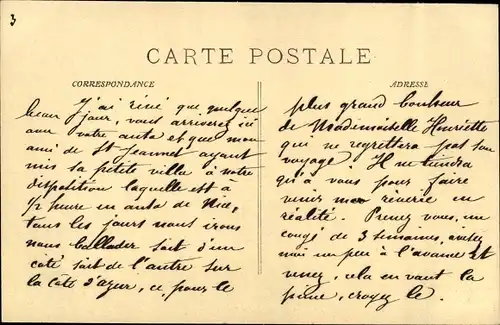 3
CARTE POSTALE
CORRESPONDANCE
J'ai rêvé que quelque
beau jour, vous arriverez ici
avec votre auto et que mon
ami de St Jeannet ayant
mis sa petite ville à notre
disposition laquelle est à
1/2 heure en auto de Nice,
tous les jours nous irons
nous ballader soit d'un
côté soit de l'autre sur
la côte d'azur, ce, pour le
ADRESSE
plus grand bonheur
de Mademoiselle Henriette
qui ne regrettera pas son
voyage! Il ne tiendra
qu'à vous pour faire
venir mon rêverie en
réalité. Prenez vous, un
congé de 3 semaines, avisez
moi un peu à l'avance et
venez, cela en vaut la
peine, croyez le.